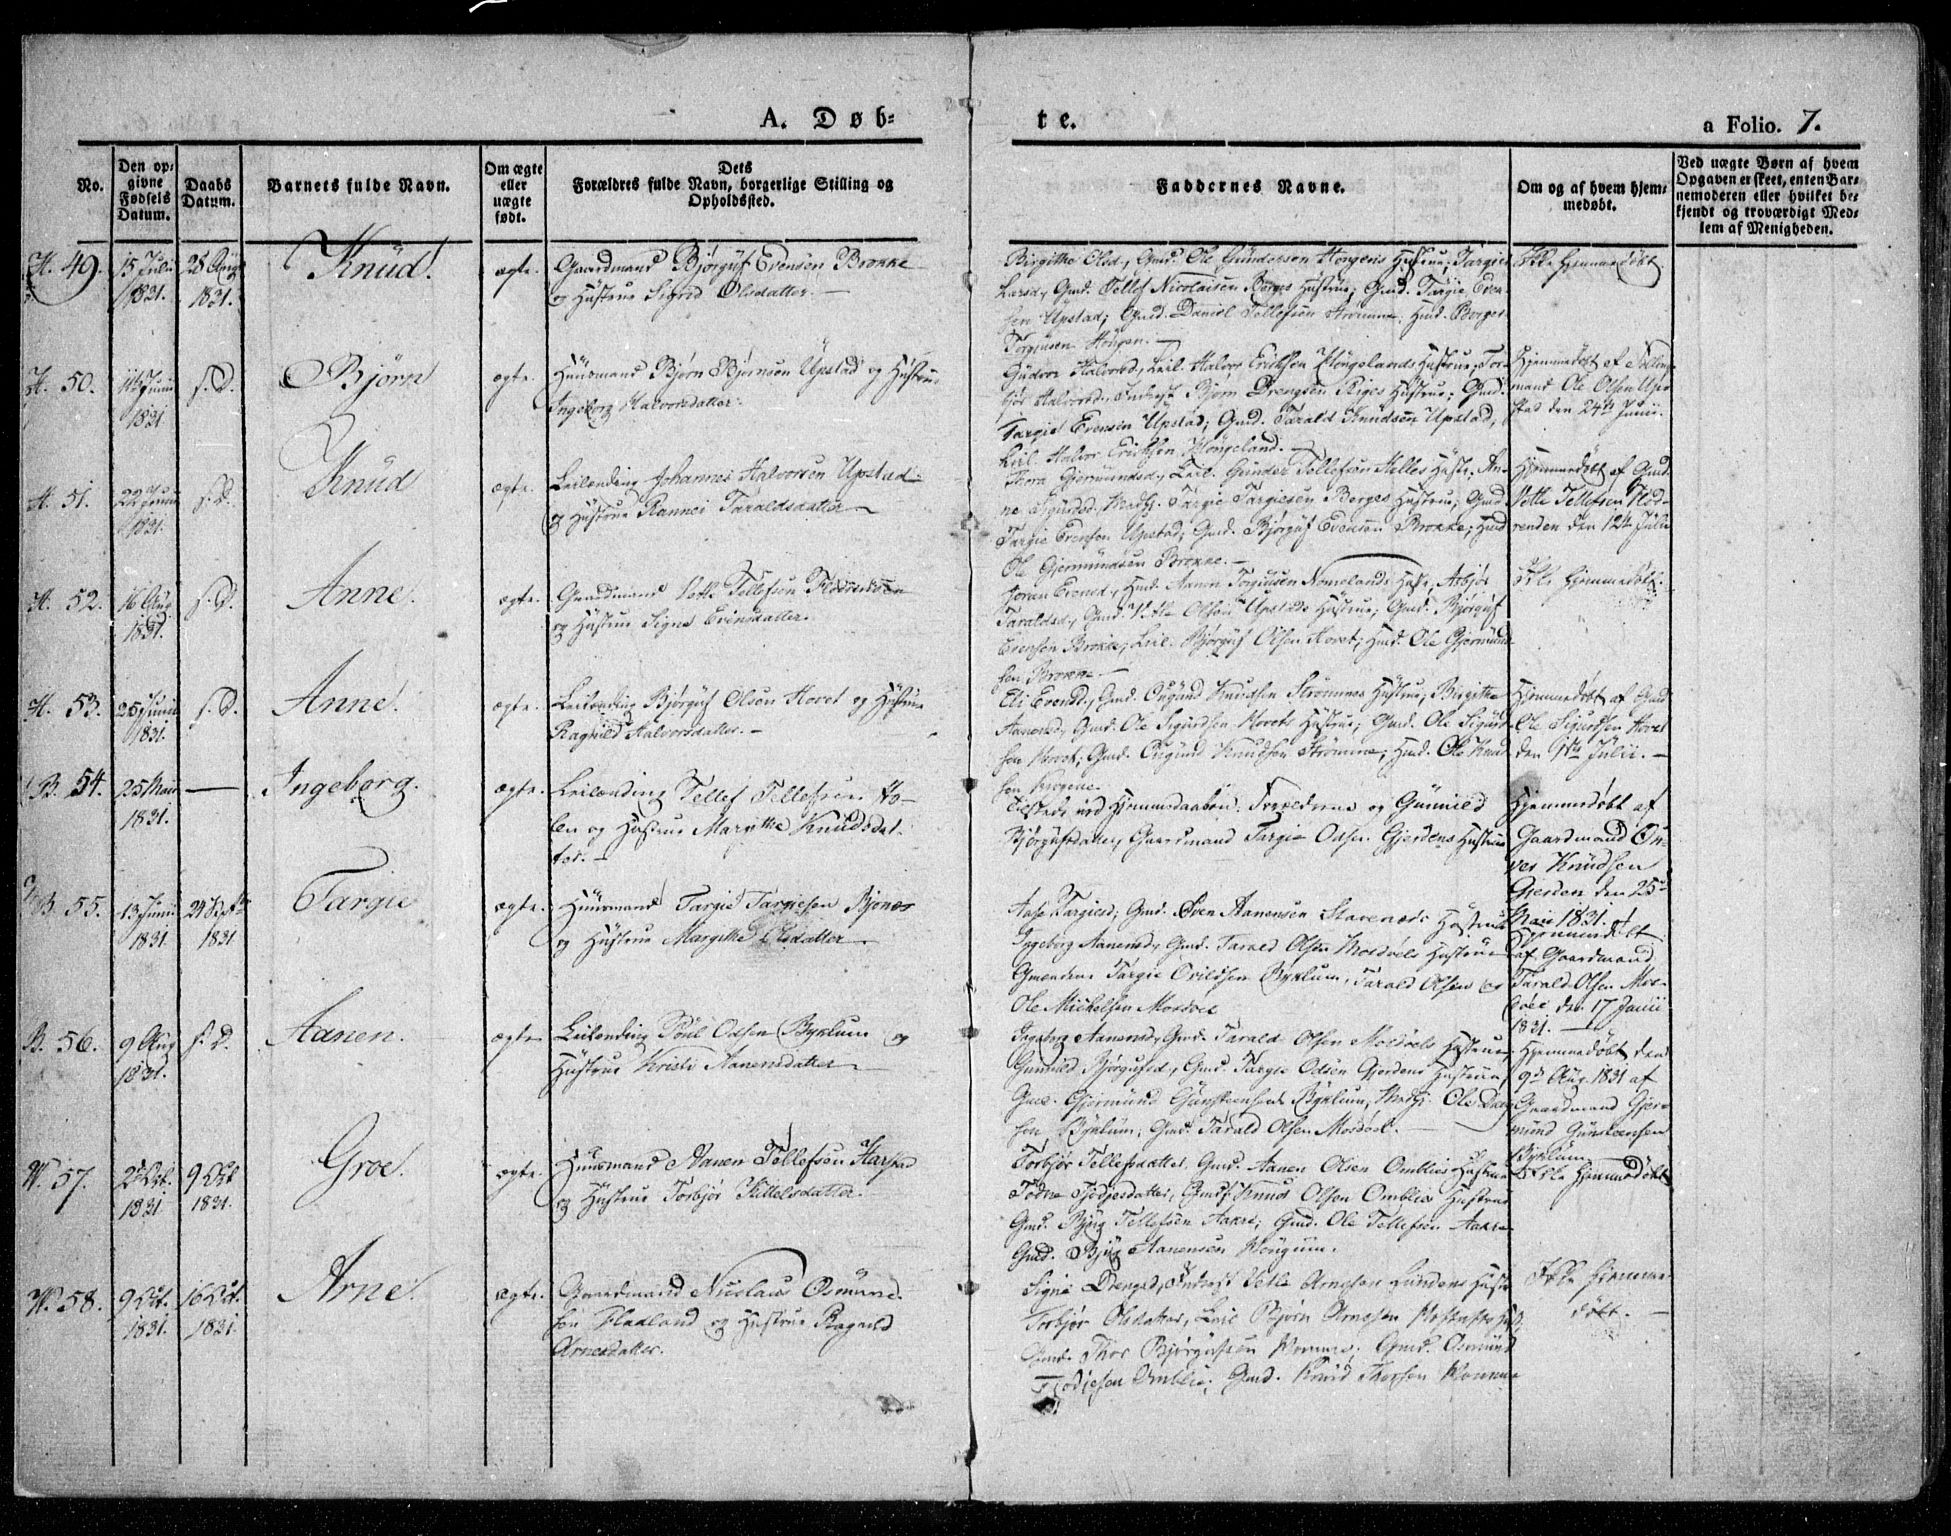 A. Døb-
te.
a Folio. 7.
No.
Den op-
givne
Fødsels
Datum.
Daabs
Datum.
Barnets fulde Navn.
Om ægte
eller
uægte
født.
Dets
Forældres fulde Navn, borgerlige Stilling og
Opholdssted.
Faddernes Navne.
Om og af hvem hjem-
medøbt.
Ved uægte Børn af hvem
Opgaven er skeet, enten Bar-
nemoderen eller hvilket be-
kjendt og troværdigt Med-
lem af Menigheden.
H. 49. 15 Juli 1831. 28 Aug 1831. Knud. ægte.
Gaardmand Bjørguf Evensen Brokke
og Hustrue Sigrid Olsdatter. —
Birgithe Olsd., Gmd. Ole Gundersen Hongens Hustrue; Targier
Larsd., Gmd. Tellef Nicolaisen Berges Hustrue; Gmd. Targie Even-
sen Upstad; Gmd. Daniel Tellefsen Strømme; Hmd. Borger
Torgiusen Hongen. —
Ikke hjemmedøbt.
H. 50. 11te Junii 1831 s. D. Bjørn ægte.
Huusmand Bjørn Bjørnsen Upstad og Hustrue
Ingeborg Halvorsdatter.
Gudvor Halvorsd., Leil. Halvor Eriksen Hongelands Hustrue; Tor-
bjør Halvorsd., Inderst Bjørn Drengsen Riges Hustrue; Gmd.
Targie Evensen Upstad; Gmd. Tarald Knudsen Upstad,
Leil. Halvor Eriksen Hongeland. —
Hjemmedøbt af
mand Ole Olsen Up-
stad den 24de Junii.
H. 51. 22 Junii 1831. s. D. Knud ægte.
Leilænding Johannes Halvorsen Upstad
og Hustrue Rannei Taraldsdatter —
Thora Gjermundsd., Leil. Gunder Tellefsen Helles Hustr., An-
ne Sigurdsd., Targie Targiesen Berges Hustrue; Gmd.
Targie Evensen Upstad; Gmd. Bjørguf Evensen Brokke; Hmd
Ole Gjermundsen Brokke. —
Hjemmedøbt af Gmd.
Vetle Tellefsen Flod-
renden den 12te Julii
H. 52. 16 Aug 1831. s. D. Anne. ægte.
Gaardmand Vetle Tellefsen
og Hustrue Signe Evensdatter.
Joran Evensd., Hmd. Aanen Torgiusen Nomelands Hustr., Asbjør
Taraldsd., Gmd. Vetle Olsen Upstads Hustrue; Gmd. Bjørguf
Evensen Brokke; Leil. Bjørguf Olsen Hovet; Hmd. Ole Gjermund-
sen Brokke —
Ikke hjemmedøbt.
H. 53. 25 Junii 1831. s. D. Anne. ægte.
Leilænding Bjørguf Olsen Hovet og Hustrue
Ragnild Halvorsdatter. —
Eli Evensd., Gmd. Augund Knudsen Strømmes Hustrue; Birgithe
Aanensd., Gmd. Ole Sigurdsen Hovets Hustrue; Gmd. Ole Sigurd-
sen Hovet; Gmd. Augund Knudsen Strømme; Hmd. Ole Knud-
sen
Hjemmedøbt af Gmd
Ole Sigurdsen Hovet
den Julii. —
B. 54. 25 Maii 1831. — Ingeborg. ægte.
Leilænding Tellef Tellefsen Ho-
len og Hustrue Margithe Knudsdat-
ter. —
Tilstede ved Hjemmedaaben: Forældrene og Gunnild
Bjørgufsdatter, Gaardmand Targie Odsen Gjerdens Hustrue
Hjemmedøbt af
Gaardmand
Knudsen
Gjerden den 25de
Maii 1831.
B. 55. 13 Junii 1831. 24 Septbr 1831 Targie ægte.
Huusmand Targie Targiesen Bjønes
og Hustrue Margithe Olsdatter —
Aase Targiesd., Gmd. Sven Aanensen Stavenes's Hustrue
Ingeborg Aanensd., Gmd. Tarald Olsen Mosdøels Hustrue
Gmændene Targie Byklum, Tarald Olsen og
Ole Michelsen Mosdøel
Hjemmedøbt
af Gaardmand
Tarald Olsen Mos-
døel den 17 Junii
1831. —
B. 56. 9 Aug 1831. s. D. Aanen. ægte
Leilænding Odsen Byklum og
Hustrue Kristi Aanensdatter —
Ingeborg Aanensd., Gmd. Tarald Olsen Mosdøels Hustrue,
Gunnild Bjørgufsd., Gmd. Targie Odsen Gjerdens Hustrue,
Gmd. Gjermund Gunsteensen Byklum, Ole
sen Byklum, Gmd. Tarald Olsen Mosdøel. —
Hjemmedøbt den
9de Aug. 1831 af
Gaardmand Gjer-
mund Gunsteensen
Byklum —
W. 57. 2 Oct. 1831 9 Oct 1831. Groe. ægte.
Huusmand Aanen Tellefsen Harstad
og Hustrue Torbjør Kittelsdatter.
Torbjør Tellefsdatter, Gmd. Aanen Olsen Omblies Hustrue
Todne Tjodjesdatter, Gmd. Knud Olsen Omblies Hustrue
Gmd. Bjug Tellefsen Aakre; Gmd. Ole Tellefsen Aakre
Gmd. Bjug Aanensen Hougum.
Ikke hjemmedøbt
W. 58. 9 Oct. 1831. 16 Oct. 1831. Arne. ægte.
Gaardmand Nicolaus Osmund-
sen Fladland og Hustrue Ragnild
Arnesdatter.
Signe Drengsd., Inderst Vetle Arnesen Lundens Hustr
Torbjør Olsdatter, Leil Bjørn Arnesen
Gmd. Thor Bjørgufsen Homme; Gmd. Osmund
Tjodjesen Omblie; Gmd. Knud Thorsen Homme
Ikke hjemme-
døbt. —